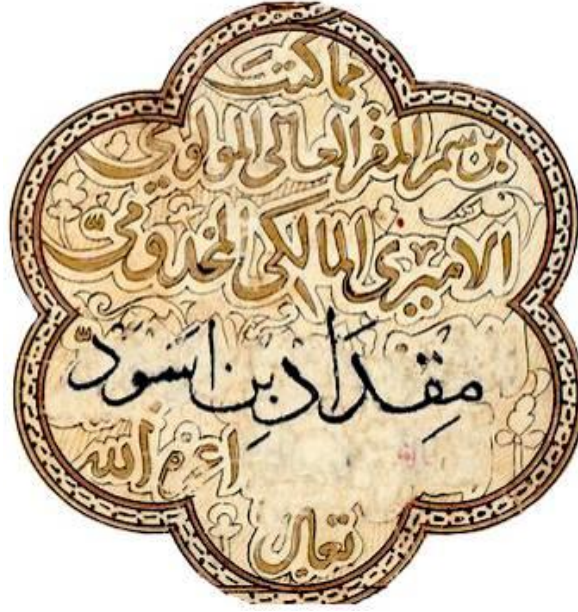 مما كتب
برسم المقر العالي المولوي
الاميري المالكي المخدومي
مِقدَاد بِن اسَوَدّ
اعز الله
تعالى